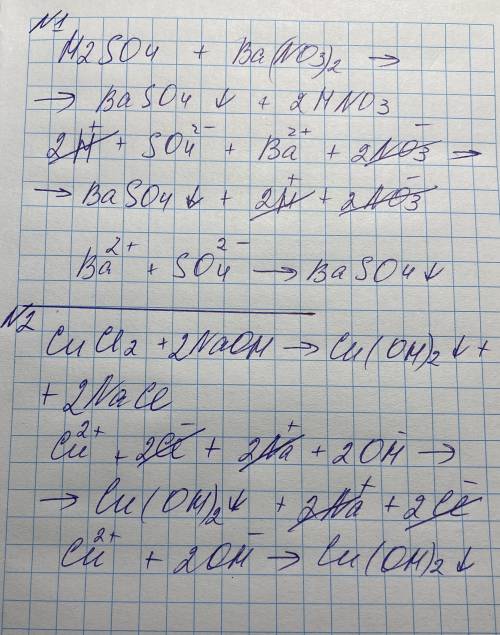 N1
H2SO4 + Ba(NO3)2 →
→ BaSO4 ↓ + 2HNO3
2H⁺ + SO4²⁻ + Ba²⁺ + 2NO3⁻ →
→ BaSO4 ↓ + 2H⁺ + 2NO3⁻
Ba²⁺ + SO4²⁻ → BaSO4↓
N2
CuCl2 + 2NaOH → Cu(OH)2↓ +
+ 2NaCl
Cu²⁺ + 2Cl⁻ + 2Na⁺ + 2OH⁻ →
→ Cu(OH)2↓ + 2Na⁺ + 2Cl⁻
Cu²⁺ + 2OH⁻ → Cu(OH)2↓